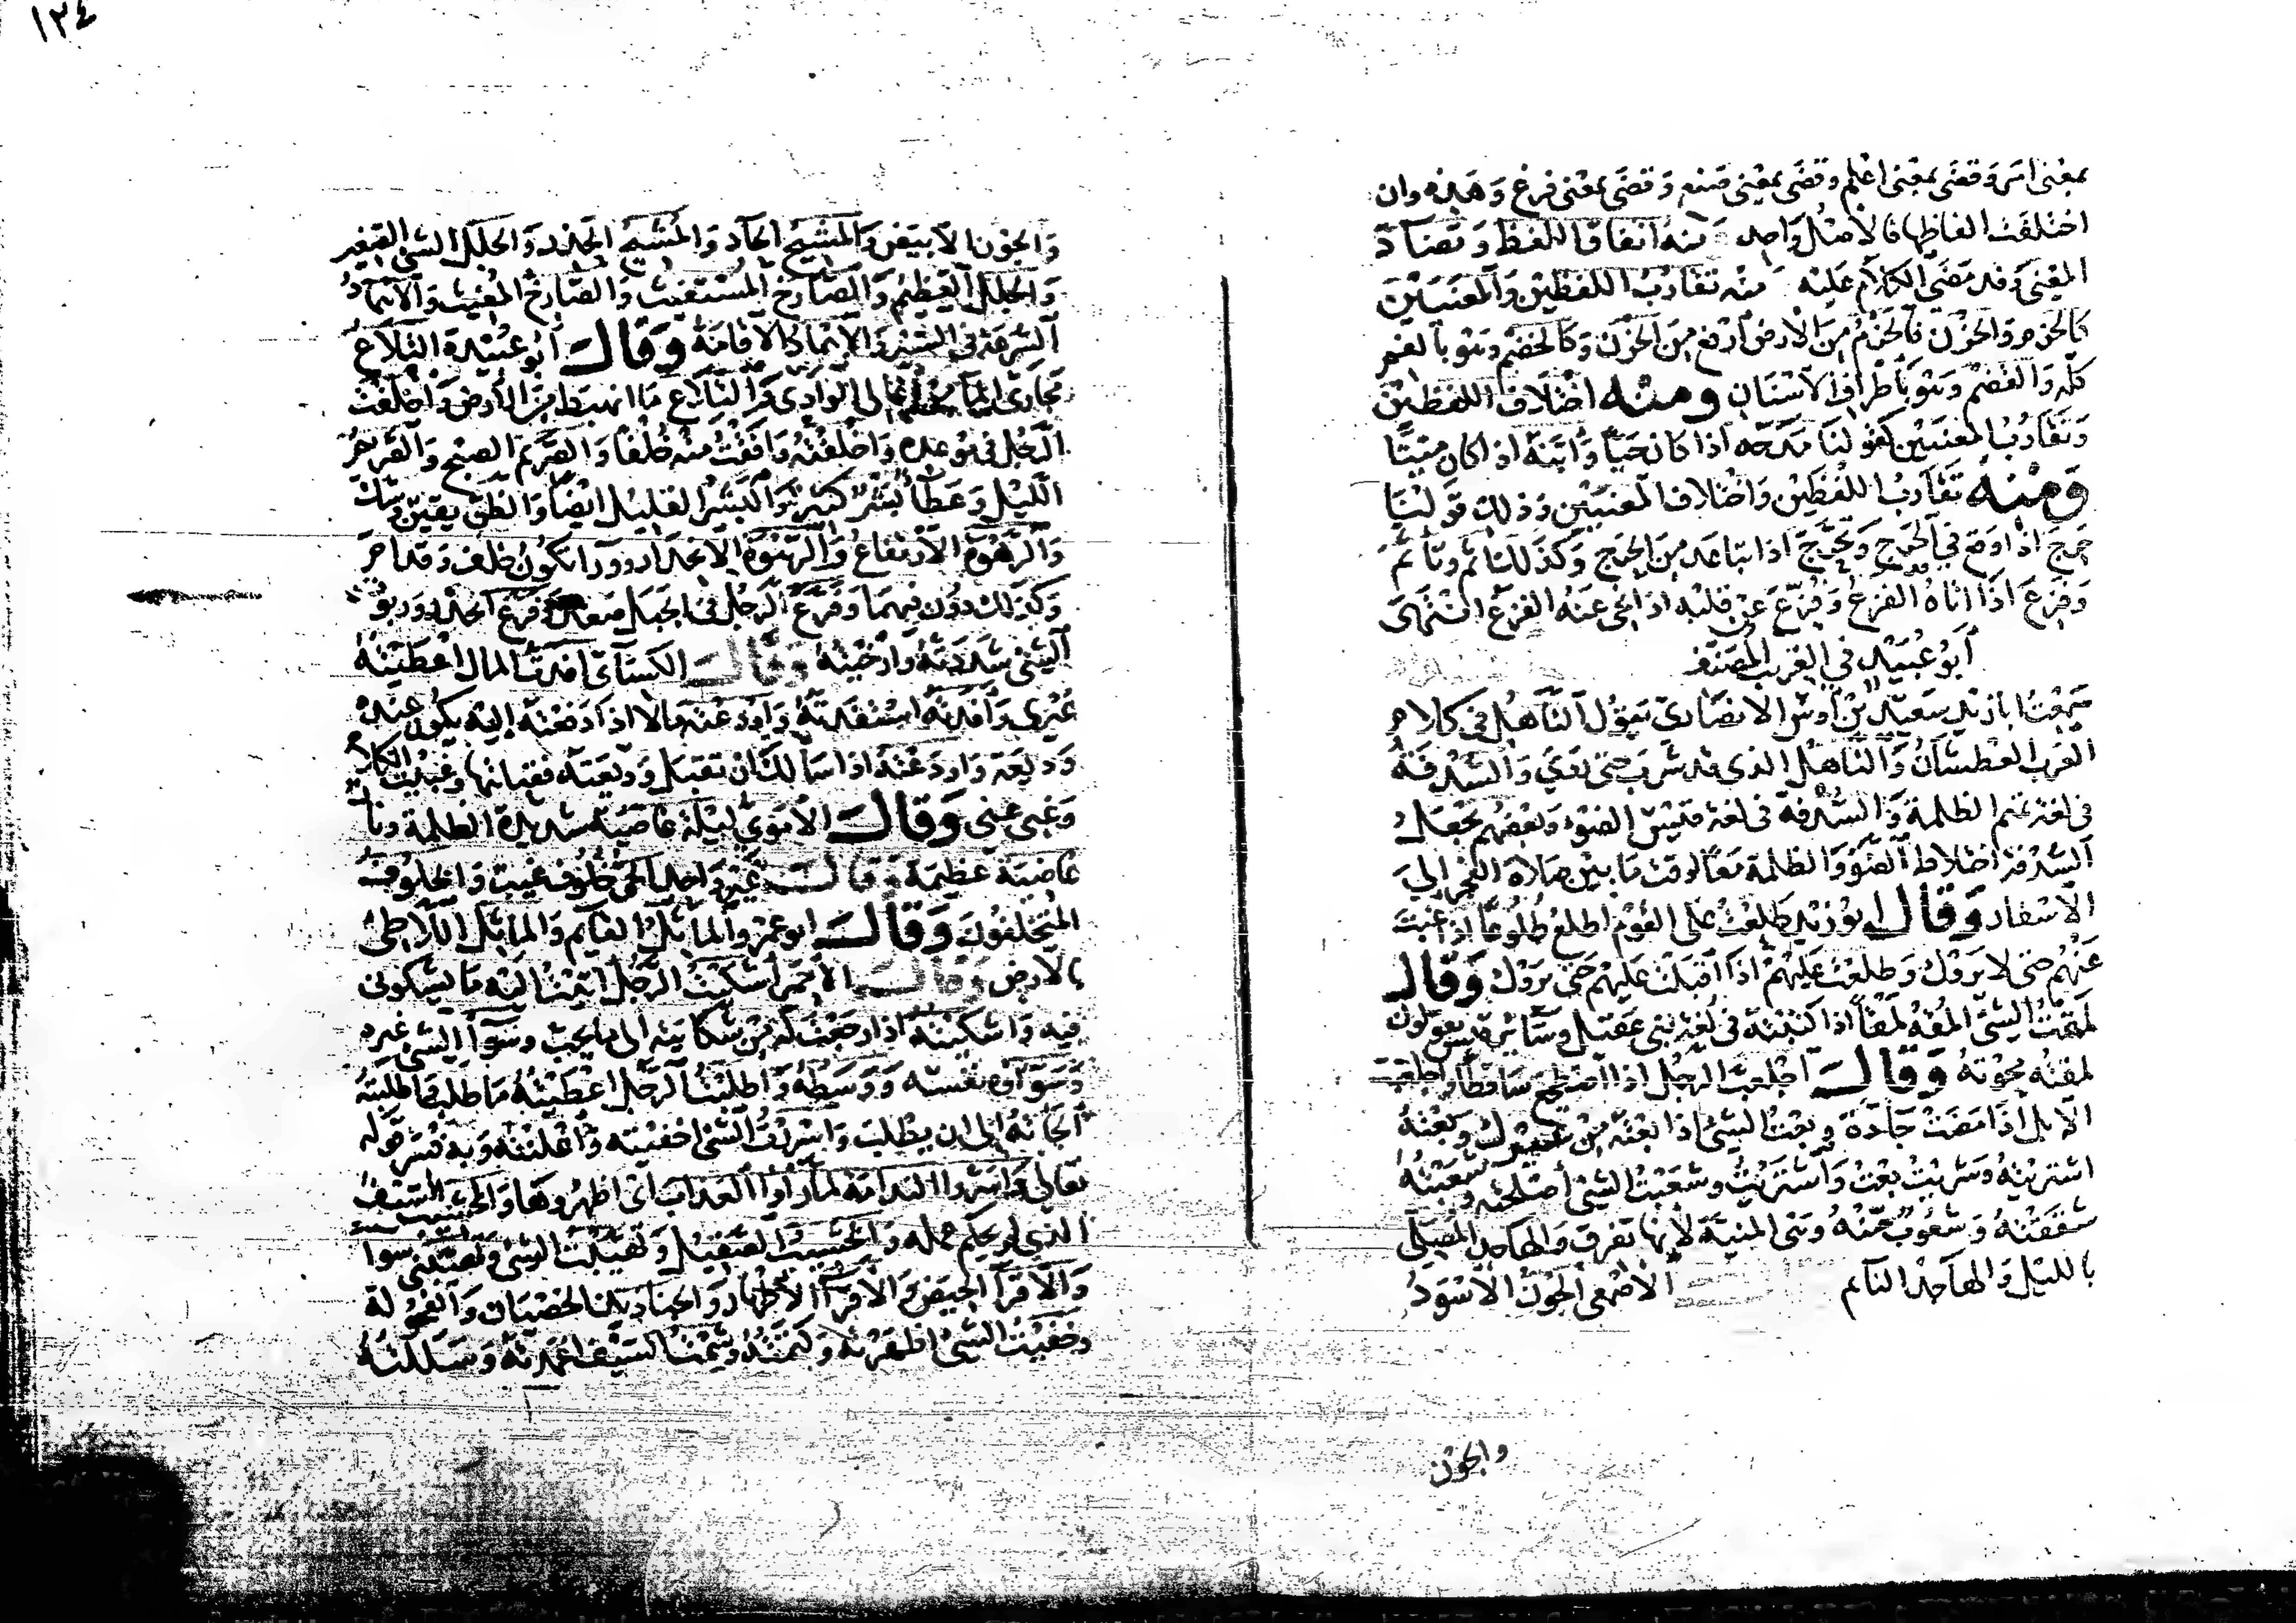 ١٣٤
بمعنى امر وقضى بمعنى اعلم وقضى بمعنى صنع وقضى بمعنى فرغ وهذه وان
اختلفت الفاظها فالاصل واحد ومنه اتفاق اللفظ وتضاد
المعنى وقد مضى الكلام عليه ومنه تقارب اللفظين والمعنيين
كالحزم والحزن فالحزم من الارض ارفع من الحزن وكالخضم وهو بالفم
كله والقضم وهو باطراف الاسنان ومنه اختلاف اللفظين
وتقارب المعنيين كقولنا مدحه اذا كان حيا وابنه اذا كان ميتا
ومنه تقارب اللفظين واختلاف المعنيين وذلك قولنا
حرج اذا وقع في الحرج وتحرج اذا تباعد من الحرج وكذلك اثم وتاثم
وفزع اذا اتاه الفزع وفزع عن قلبه اذا نحي عنه الفزع انتهى
ابو عبيد في الغريب المصنف
سمعت ابا زيد سعيد بن اوس الانصاري يقول الناهل في كلام
العرب العطشان والناهل الذي قد شرب حتى روي والسدفة
في لغة تميم الظلمة والسدفة في لغة قيس الضوء وبعضهم يجعل
السدفة اختلاط الضوء والظلمة معا كوقت ما بين صلاة الفجر الى
الاسفار وقال ابو زيد طلعت على القوم اطلع طلوعا اذا غبت
عنهم حتى لا يروك وطلعت عليهم اذا اقبلت عليهم حتى يروك وقال
لمقت الشئ المقه لمقا اذا كتبته في لغة بني عقيل وسائر قيس يقولون
لمقته محوته وقال اجلعب الرجل اذا اضطجع ساقطا واجلعبت
الابل اذا مضت جادة وبعت الشئ اذا بعته من غيرك وبعته
اشتريته وشريت بعت واشتريت وشعبت الشئ اصلحته وشعبته
شققته وشعوب منه وهي المنية لانها تفرق والهاجد المصلي
بالليل والهاجد النائم الاصمعي الجون الاسود
والجون
والجون الابيض والمشيح الجاد والمشيح الحذر والجلل الشئ الصغير
والجلل العظيم والصارخ المستغيث والصارخ المغيث والاهماد
السرعة في السير والاهماد الاقامة وقال ابو عبيدة التلاع
مجاري الماء من اعالي الوادي والتلاع ما انهبط من الارض واخلفت
الرجل في موعده واخلفته وافقت منه خلفا والصريم الصبح والصريم
الليل وعطاء بثر كثير والبثر القليل ايضا والظن يقين وشك
والرهوة الارتفاع والرهوة الانحدار ووراء تكون خلف وقدام
وكذلك دون فيهما وفرع الرجل في الجبل صعد وفرع انحدر ورتوت
الشئ شددته وارخيته وقال الكسائي افدت المال اعطيته
غيري وافدته استفدته واودعته مالا اذا دفعته اليه يكون عنده
وديعة واودعته اذا سالك ان تقبل وديعته فقبلتها وغبيت الكلام
وغبي عني وقال الاموي ليلة غاضية شديدة الظلمة ونار
غاضية عظيمة وقال غير واحد الحي خلوف غيب والخلوف
المتخلفون وقال ابو عمرو الماثل القائم والماثل اللاطئ
بالارض وقال الاحمر اشكيت الرجل اتيت اليه ما يشكوني
فيه واشكيته اذا رجعت له من شكايته الى ما يحب وسواء الشئ غيره
وسواؤه نفسه ووسطه واطلبت الرجل اعطيته ما طلب واطلبته
الجاته الى ان يطلب واسررت الشئ اخفيته واعلنته وبه فسر قوله
تعالى واسروا الندامة لما راوا العذاب اي اظهروها والخشيب السيف
الذي لم يحكم عمله والخشيب الصقيل وتهيبت الشئ وتهيبني سواء
والاقراء الحيض والاقراء الاطهار والخناذيذ الخصيان والفحولة
وخفيت الشئ اظهرته وكتمته وشمت السيف اغمدته وسللته